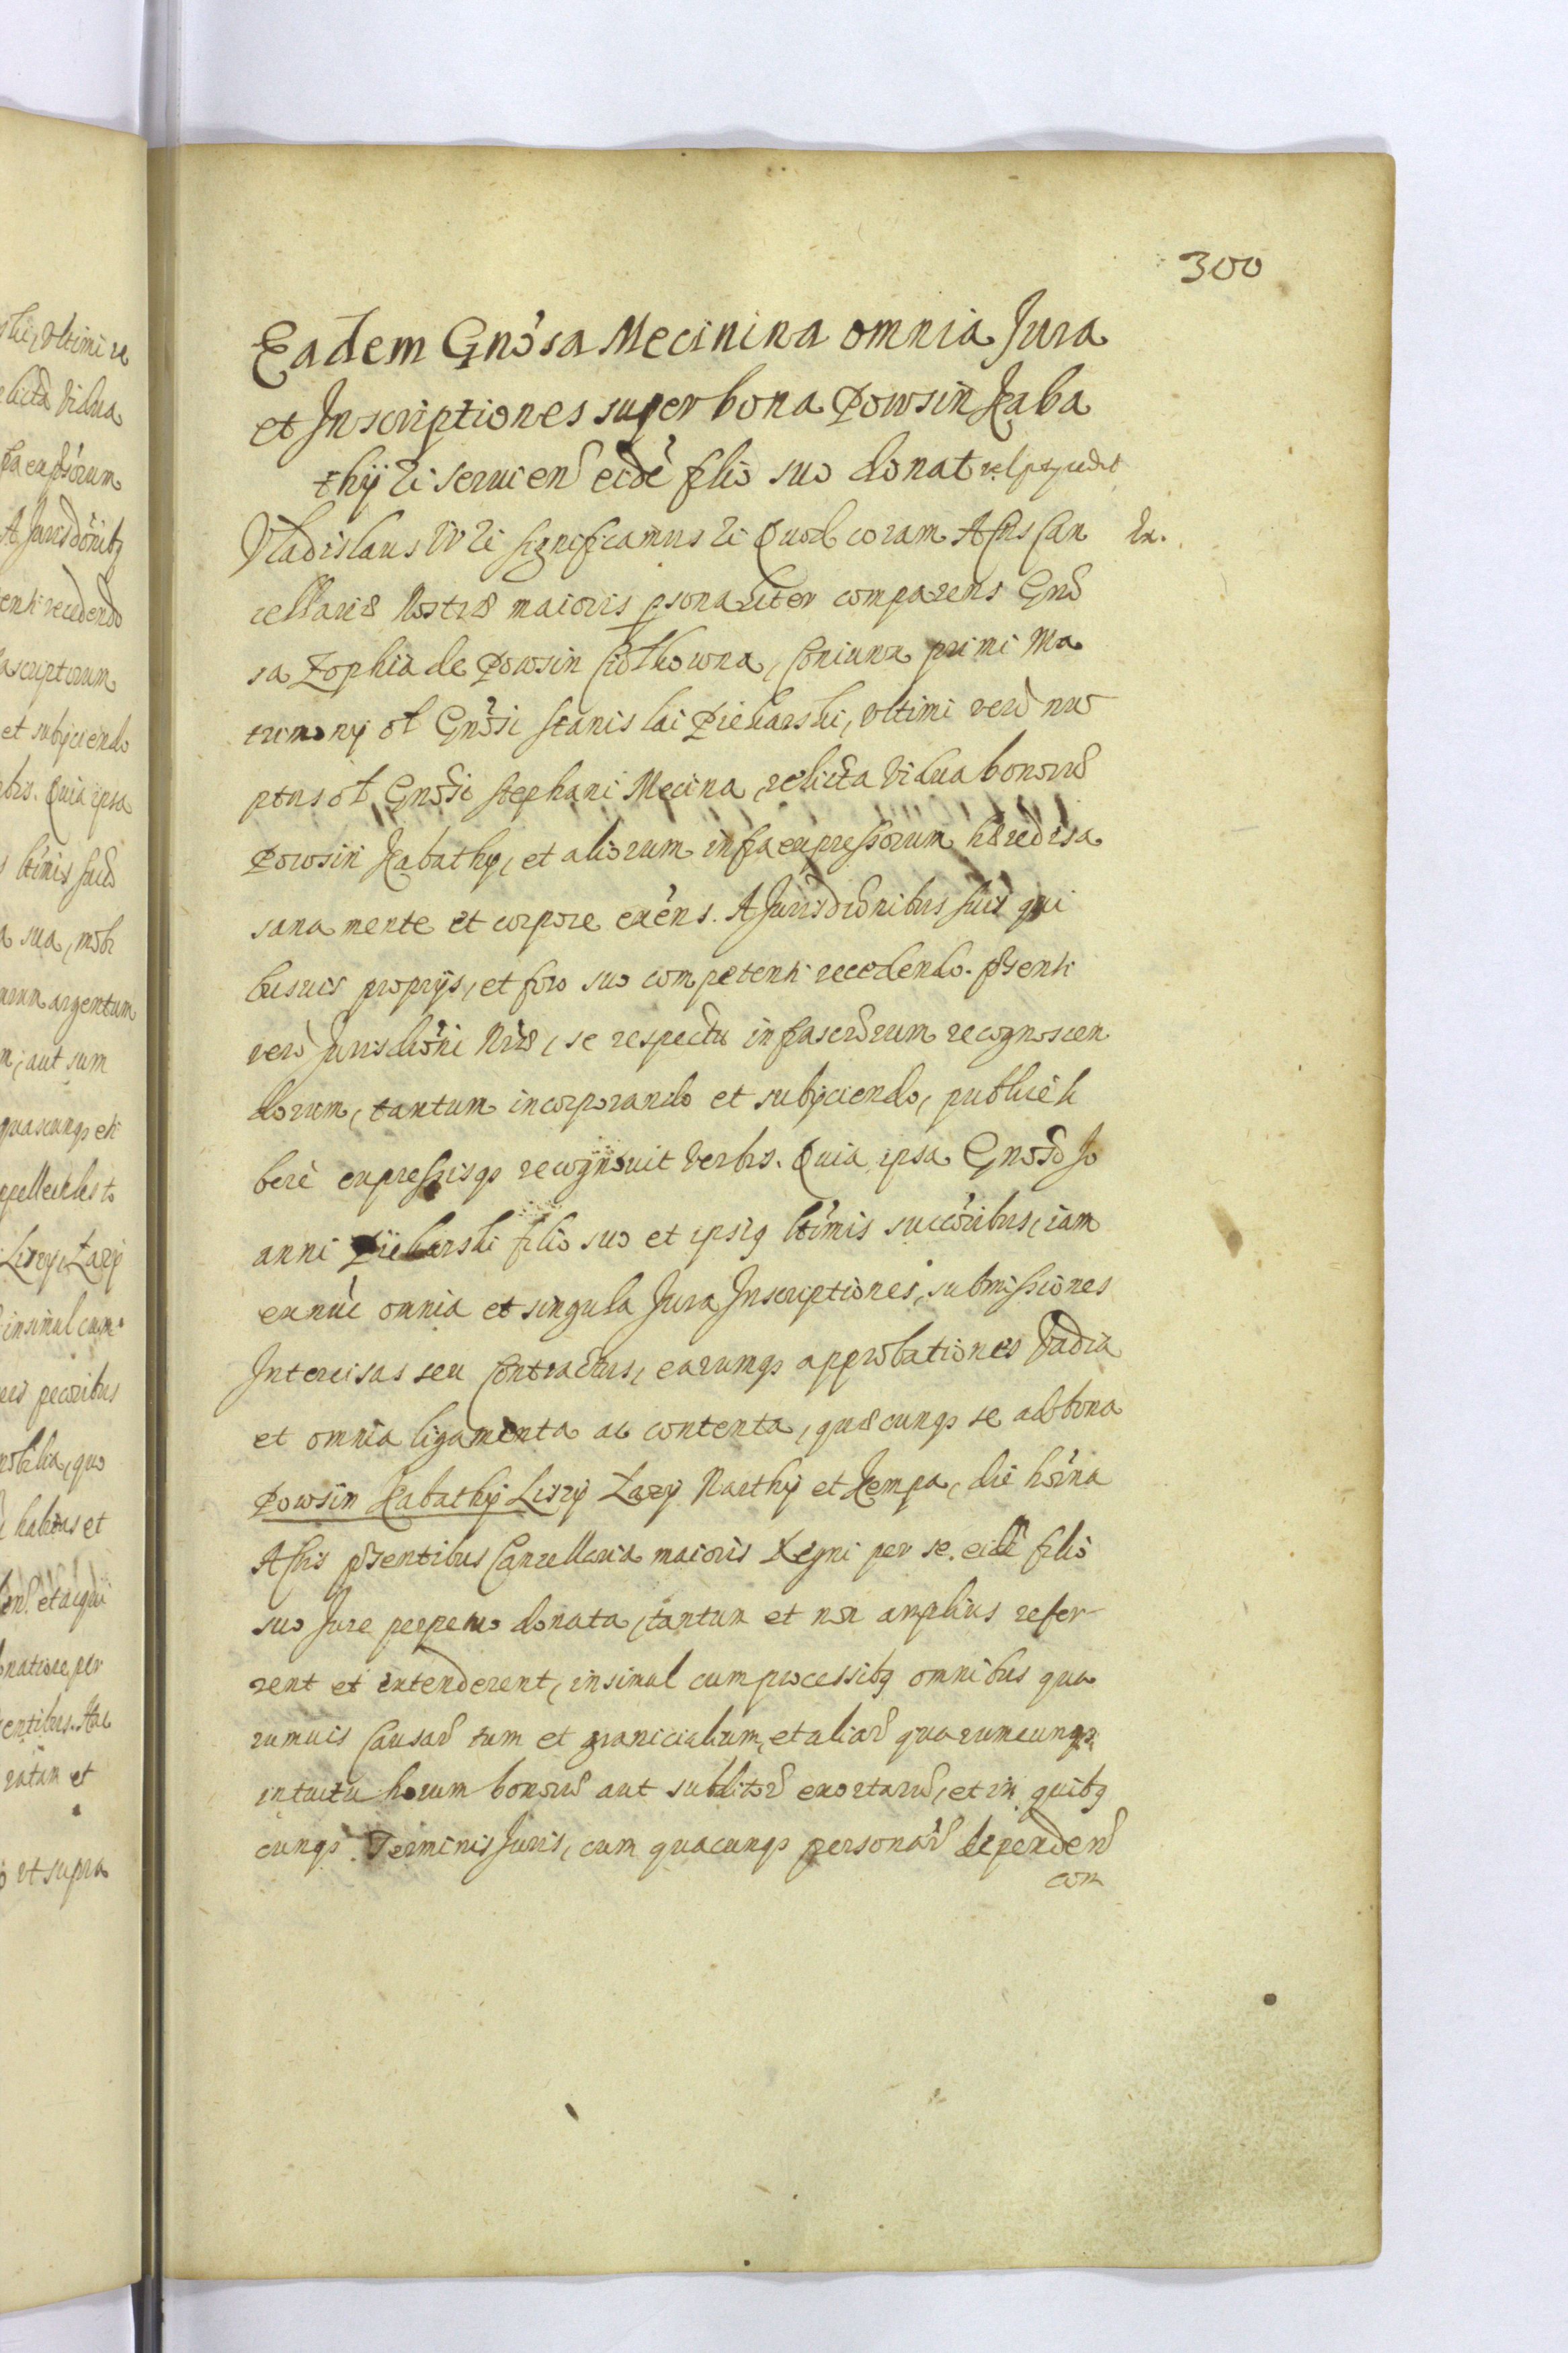 300
Eadem Gnosa Mecinina omnia Jura
et Inscriptiones super bona Powsin Kaba
thÿ &c seruien eidē filio suo donat
Vladislaus IV &c significamus &c Quod coram Actis Can Ex.
cellariæ Nostræ maioris psonaliter comparens Gnō
sa Zophia de Powsin Ciołkowna, Coniunx primi Ma
trimonÿ ol Gnōsi Stanislai Piekarski, Vltimi verò nu
ptus ol Gnōsi Stephani Mecina, relicta Vidua bonorū
Powsin Kabathy, et aliorum infraexpressorum hæredissa
sana mente et corpore exēns. A Jurisdōnibus suis qui
busuis proprÿs, et foro suo competenti recedendo. pñti
verò Jurisdōni Nræ, se respectu infrascrorum recognoscen
dorum, tantum incorporando et subÿciendo, publicè li
berè expressisq recognouit Verbis. Quia ipsa Gnōso Jo
anni Piekarski filio suo et ipsiq ltimis succōribus, iam
exnūc omnia et singula Jura Inscriptiones, submissiones
Intercisas seu Contractus, earumq approbationes Vadia
et omnia ligamenta ac contenta, quæcunq se ad bona
Powsin Kabathÿ Lisÿ Łazÿ Narthÿ et Kempa, die hōrna
Actis pñtibus Cancellaria maioris Regni per se. eidē filio
suo Jure perpetuo donata, tantum et non amplius refer-
rent et extenderent, insimul cum processibq omnibus qua
rumuis Causarū tum et granicialium, et aliarū quarumcunq
intuitu horum bonorū aut subditorū exortarū, et in quibq
cunq Terminis Juris, cum quacunq personarū dependen
com